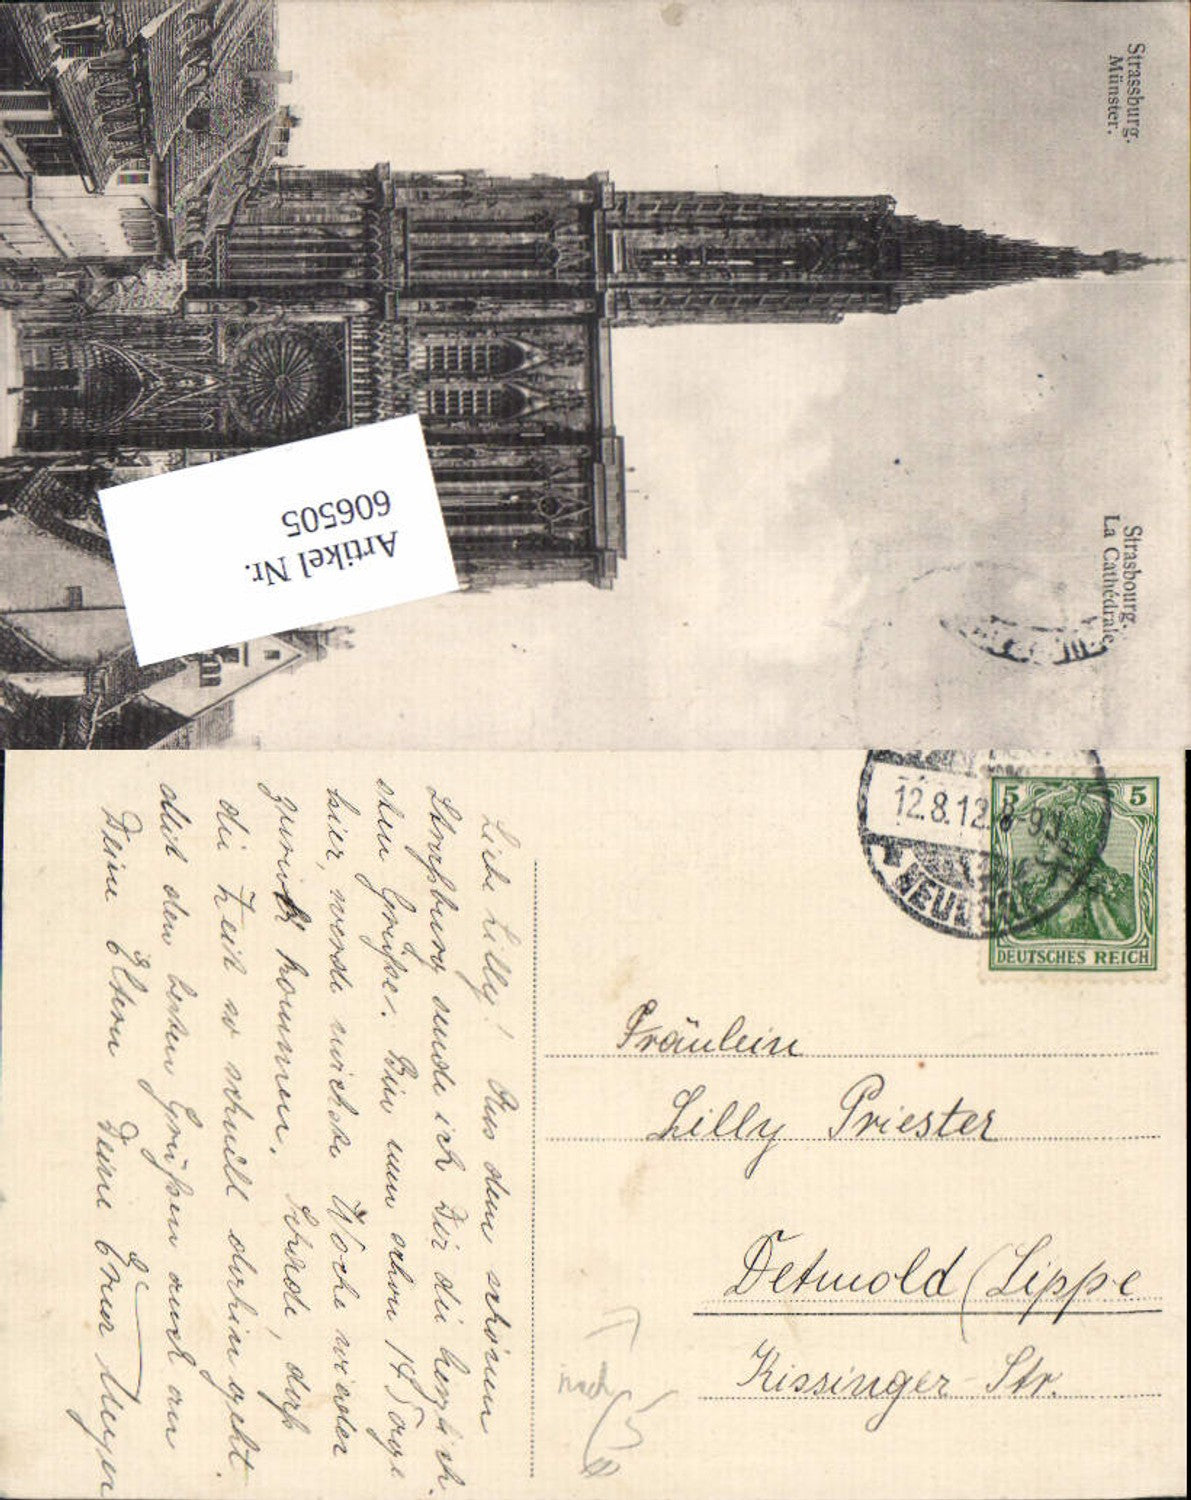 Strassburg.
Münster.
Strasbourg.
La Cathédrale.
Artikel Nr.
606505
12.8.12. 8-9
NEUDORF
5 5
DEUTSCHES REICH
Liebe Lilly! Aus dem schönen
Straßburg sende ich Dir die herzlich.
sten Grüße. Bin nun schon 14 Tage
hier, werde nächste Woche wieder
zurück kommen. Schade, daß
die Zeit so schnell dahin geht.
Mit den besten Grüßen auch an
Deine Eltern Deine Erna Meyer
Fräulein
Lilly Priester
Detmold (Lippe
Kissinger-Str.
nach
5